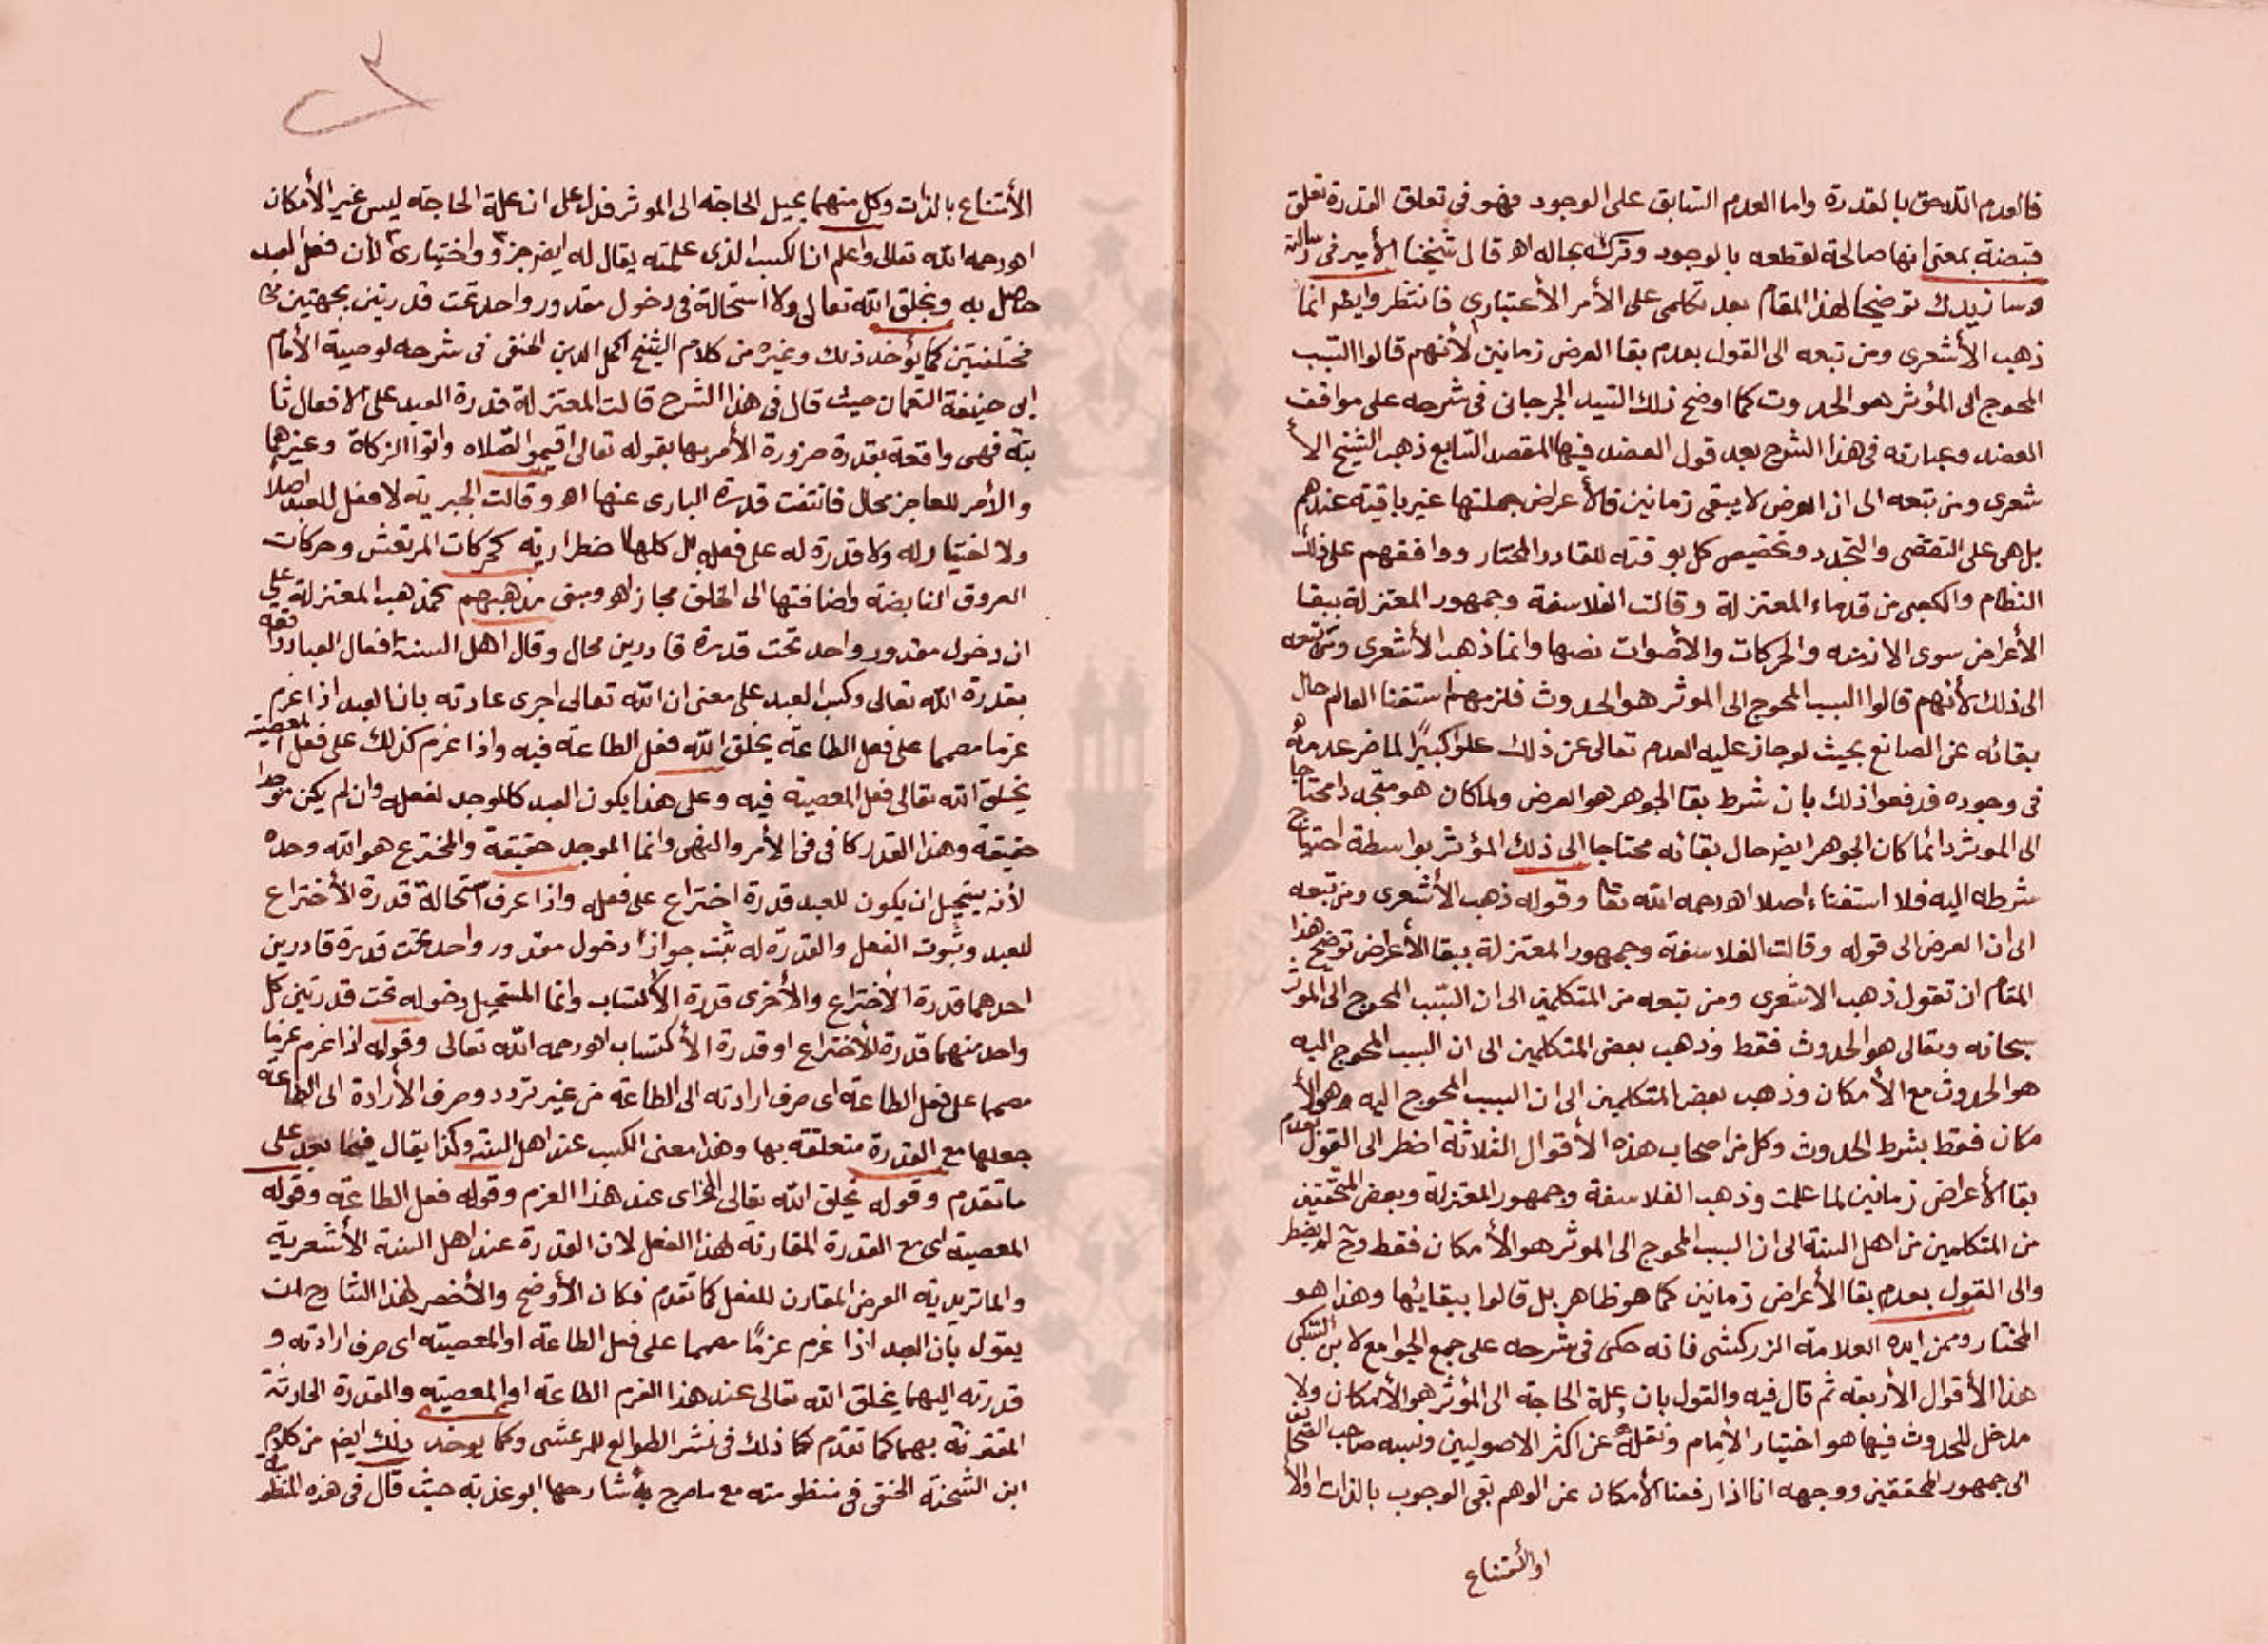 فالعدم اللاحق بالقدرة واما العدم السابق على الوجود فهو فى تعلق القدرة تعلق
قبضة بمعنى انها صالحة لقطعه بالوجود وتركه بحاله اهـ قال شيخنا الأمير فى رسالته
وسازيدك توضيحا لهذا المقام بعد تكلمى على الأمر الأعتبارى فانتظر وايضا انما
ذهب الأشعرى ومن تبعه الى القول بعدم بقا العرض زمانين لأنهم قالوا السبب
المحوج الى المؤثر هو الحدوث كما اوضح ذلك السيد الجرجانى فى شرحه على مواقف
العضد وعبارته فى هذا الشرح بعد قول العضد فيها المقصد السابع ذهب الشيخ الأ
شعرى ومن تبعه الى ان العرض لا يبقى زمانين فالأعراض جملتها غير باقية عندهم
بل هى على التقضى والتجدد وتخصيص كل بوقته للقادر المختار ووافقهم على ذلك
النظام والكعبى من قدماء المعتزلة وقالت الفلاسفة وجمهور المعتزلة ببقا
الأعراض سوى الازمنه والحركات والاصوات نصها وانما ذهب الأشعرى ومن تبعه
الى ذلك لأنهم قالوا السبب المحوج الى الموثر هو الحدوث فلزمهم استغنا العالم حال
بقائه عن الصانع بحيث لو جاز عليه العدم تعالى عن ذلك علوا كبيرًا لما ضر عدمه
فى وجوده فدفعوا ذلك بان شرط بقا الجوهر هو العرض ولما كان هو متجددا محتاجا
الى الموثر دائما كان الجوهر ايضا حال بقائه محتاجا الى ذلك المؤثر بواسطة احتياج
شرطه اليه فلا استغناء اصلا اهـ رحمه الله تعا وقوله ذهب الأشعرى ومن تبعه
الى ان العرض الى قوله وقالت الفلاسفة وجمهور المعتزلة ببقا الأعراض توضيح هذا
المقام ان تقول ذهب الاشعرى ومن تبعه من المتكلمين الى ان السبب المحوج الى الموثر
سبحانه وتعالى هو الحدوث فقط وذهب بعض المتكلمين الى ان السبب المحوج اليه
هو الحدوث مع الأمكان وذهب بعض المتكلمين الى ان السبب المحوج اليه وهو الأ
مكان فقط بشرط الحدوث وكل من اصحاب هذه الأقوال الثلاثة اضطر الى القول بعدم
بقا الأعراض زمانين لما علمت وذهب الفلاسفة وجمهور المعتزلة وبعض المحققين
من المتكلمين من اهل السنة الى ان السبب المحوج الى الموثر هو الأمكان فقط وح لم يضطر
والى القول بعدم بقا الأعراض زمانين كما هو ظاهر بل قالوا ببقائها وهذا هو
المختار وممن ايده العلامة الزركشى فانه حكى فى شرحه على جمع الجوامع لابن السبكى
هذا الأقوال الأربعه ثم قال فيه والقول بان علة الحاجة الى المؤثر هو الأمكان ولا
مدخل للحدوث فيها هو اختيار الأمام ونقله عن اكثر الاصوليين ونسبه صاحب الصحائف
الى جمهور المحققين ووجهه انا اذا رفعنا الأمكان عن الوهم بقى الوجوب بالذات والأ
او الأمتناع
الأمتناع بالذات وكل منهما يحيل الحاجة الى الموثر فدل على ان علة الحاجة ليس غير الأمكان
اهـ رحمه الله تعالى واعلم ان الكسب الذى علمته يقال له ايضا جزؤ واختيارى لأن فعل العبد
حاصل به وبخلق الله تعالى ولا استحالة فى دخول مقدور واحد تحت قدرتين بجهتين
مختلفتين كما يؤخذ ذلك وغيره من كلام الشيخ اكمل الدين الحنفى فى شرحه لوصية الأمام
ابى حنيفة النعمان حيث قال فى هذا الشرح قالت المعتزلة قدرة العبد على الافعال ثا
بتة فهى واقعة بقدرة ضرورة الأمر بها بقوله تعالى اقيموا الصلاه واتوا الزكاة وغيرها
والأمر للعاجز محال فانتفت قدرة البارى عنها اهـ وقالت الجبرية لا فعل للعبد اصلا
ولا اختيار له ولا قدرة له على فعله بل كلها اضطرارية كحركات المرتعش وحركات
العروق النابضة واضافتها الى الخلق مجاز اهـ ومبنى مذهبهم كمذهب المعتزلة على
ان دخول مقدور واحد تحت قدرة قادرين محال وقال اهل السنة افعال العباد واقعة
بقدرة الله تعالى وكسب العبد على معنى ان الله تعالى اجرى عادته بان العبد اذا عزم
عزما مصمما على فعل الطاعة يخلق الله فعل الطاعة فيه واذا عزم كذلك على فعل المعصية
يخلق الله تعالى فعل المعصية فيه وعلى هذا يكون العبد كالموجد لفعله وان لم يكن موجدا
حقيقة وهذا القدر كافى فى الأمر والنهى وانما الموجد حقيقة والمخترع هو الله وحده
لأنه يستحيل ان يكون للعبد قدرة اختراع على فعله واذا عرف استحالة قدرة الأختراع
للعبد وثبوت الفعل والقدرة له ثبت جواز دخول مقدور واحد تحت قدرة قادرين
احدهما قدرة الأختراع والأخرى قدرة الأكتساب وانما المستحيل دخوله تحت قدرتين كل
واحد منهما قدرة الأختراع او قدرة الأكتساب اهـ رحمه الله تعالى وقوله اذا عزم عزما
مصمما على فعل الطاعة اى صرف ارادته الى الطاعة من غير تردد وصرف الأرادة الى الطاعة
جعلها مع القدرة متعلقة بها وهذا معنى الكسب عند اهل السنة وكذا يقال فيما بعد على
ما تقدم وقوله يخلق الله تعالى الخ اى عند هذا العزم وقوله فعل الطاعة وقوله
المعصية اى مع القدرة المقارنة لهذا الفعل لان القدرة عند اهل السنة الأشعرية
والماتريدية العرض المقارن للفعل كما تقدم فكان الأوضح والأخصر لهذا الشارح ان
يقول بان العبد اذا عزم عزمًا مصمما على فعل الطاعة او المعصية اى صرف ارادته و
قدرته اليهما يخلق الله تعالى عند هذا العزم الطاعة او المعصية والقدرة الحادثة
المقترنة بهما كما تقدم كما ذلك فى نشر الطوالع للمرعشى وكما يوخذ ذلك ايضا من كلام
ابن الشحنة الحنفى فى منظومته مع ما صرح به شارحها ابو عذبة حيث قال فى هذه المنظو